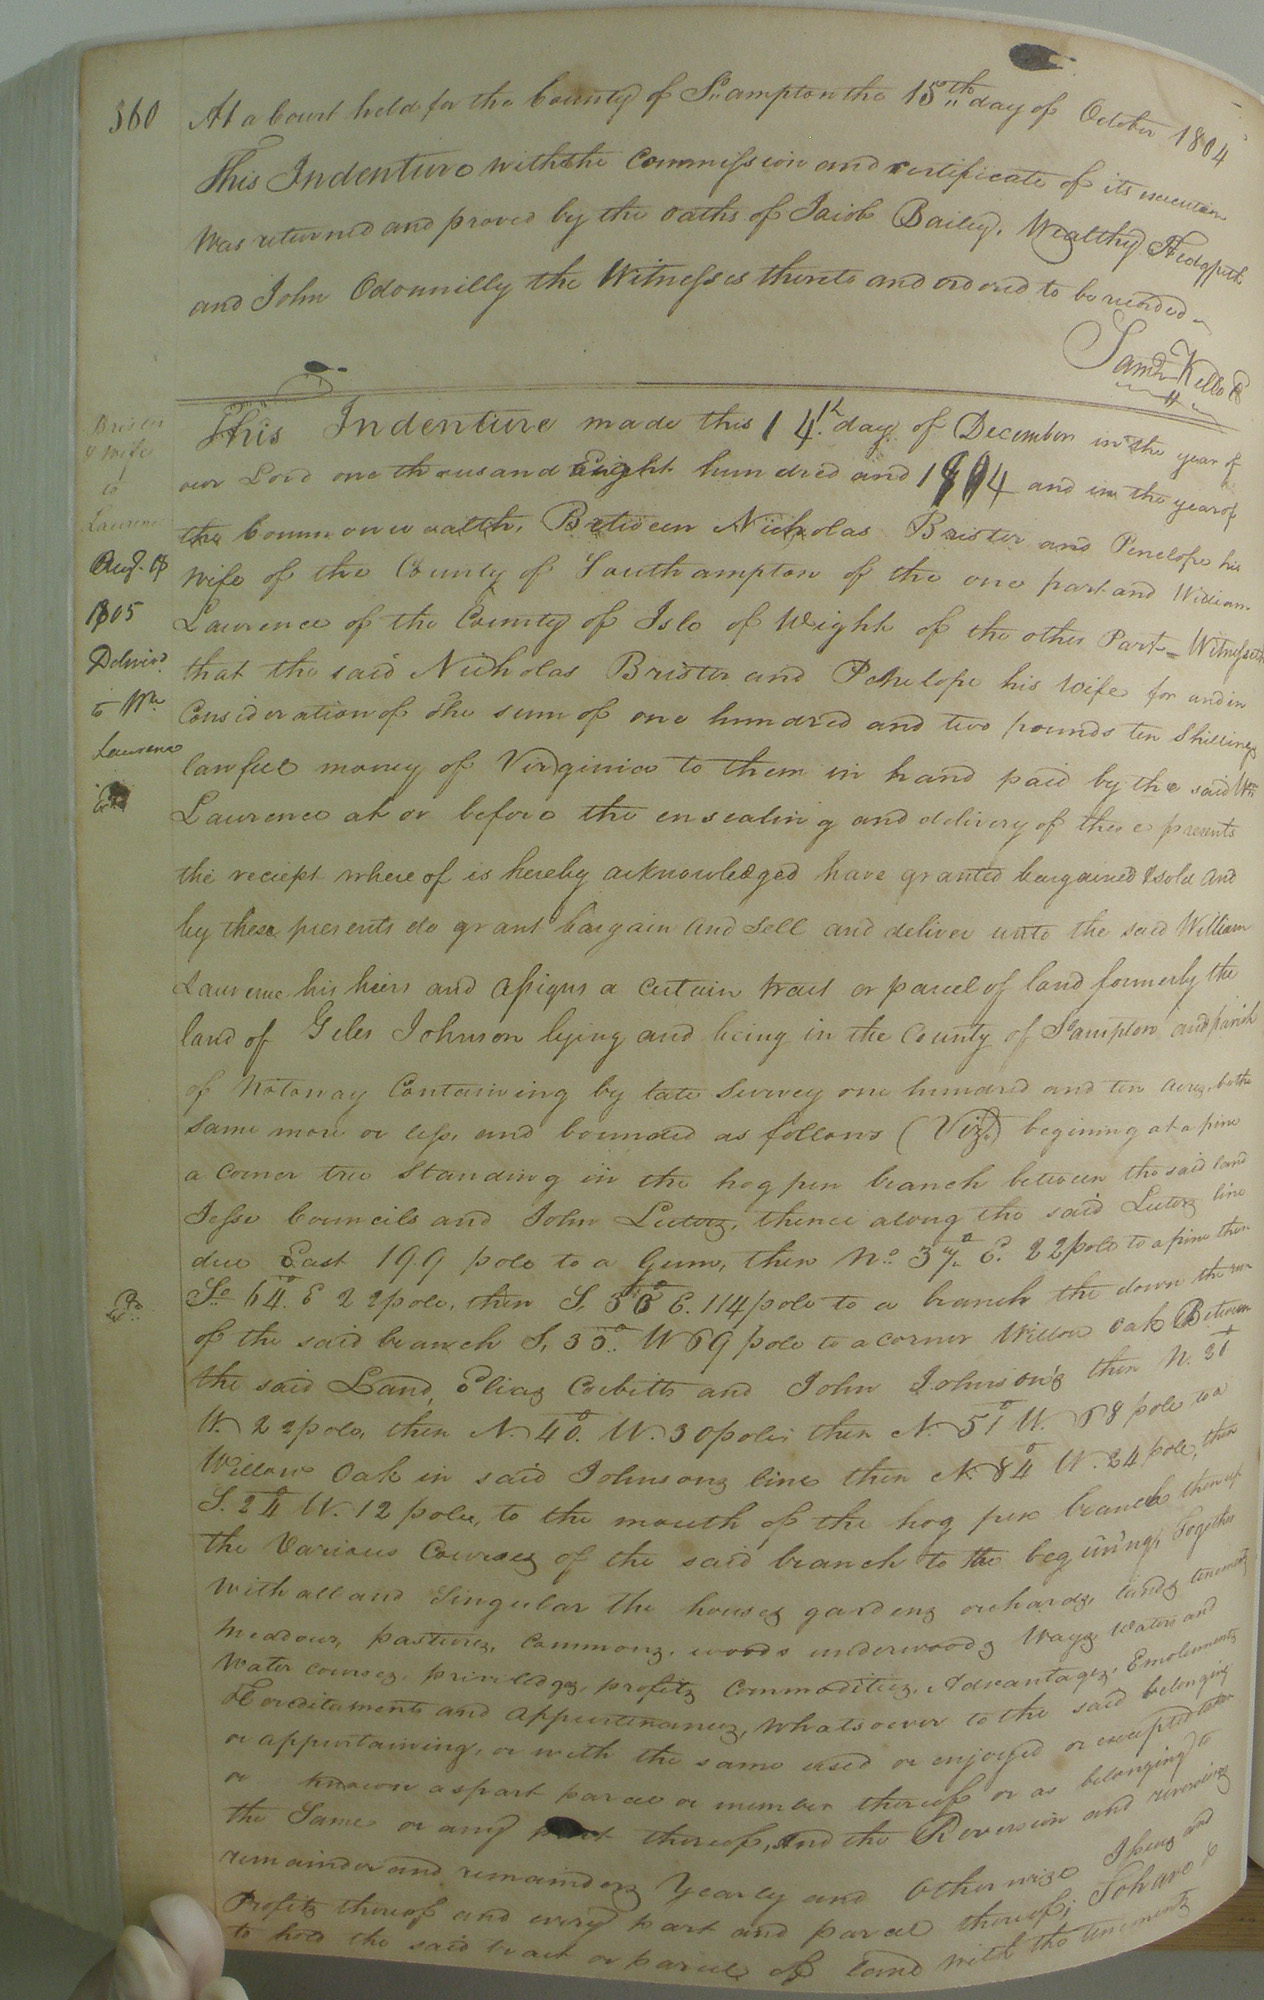 360
At a Court held for the County of So.ampton the 15th day of October 1804
This Indenture with the Commission and certificate of its execution
was returned and proved by the oaths of Jacob Bailey, Wealthy Hedgpeth
and John Odonnilly the Witnesses thereto and ordered to be recorded
Saml. Kello
Brister
& wife
to
Lawrence
Augt. 
1805
Deliverd.
to Wm
Lawrence
This Indenture made this 14th day of December in the year of
our Lord one thousand Eight hundred and 1804 and in the year of
the Commonwealth, Between Nicholas Brister and Penelope his
wife of the County of Southampton of the one part and William
Lawrence of the County of Isle of Wight of the other Part = Witnesseth
that the said Nicholas Brister and Penelope his wife for and in
Consideration of the sum of one hundred and two pounds ten Shillings
lawfull money of Virginia to them in hand paid by the said Wm
Lawrence at or before the ensealing and delivery of these presents
the reciept where of is hereby acknowledged have granted bargained & sold and
by these presents do grant bargain and sell and deliver unto the said William
Lawrence his heirs and assigns a certain tract or parcel of land formerly the
land of Giles Johnson lying and being in the County of So.ampton and parish
of Notoway Containing by late Survey one hundred and ten acres, be the
same more or less, and bounded as follows (Vizt.) begining at a pine
a corner tree Standing in the hog pen branch between the said land
Jesse Councils and John Luters, thence along the said Luters line
due East 199 pole to a Gum, then No. 37 E. 22 pole to a pine then
So 64. E 22 pole, then S. E. 114 pole to a branch the down the run
of the said branch S, 35. W 69 pole to a corner Willow oak Between
the said Land, Elias Corbitts and John Johnson's then N. 36
W. 22 pole, then N. 40. W. 30 poles then N. 51 W. 68 pole to a
Willow Oak in said Johnsons line then N. 84 W. 24 pole, then
S. 24 W. 12 poles, to the mouth of the hog pen branch then up
the Various Courses of the said branch to the begining, Together
with all and Singular the houses gardens orchards, lands tenements
meadows, pastures, Commons, woods underwoods Ways, waters and
Water courses, priviledges, profits Commodities, Advantages, Emoluments
Hereditaments and appurtenances, whatsoever to the said belonging
or appurtaining, or with the same used or enjoyed or excepted taken
or known as part parcel or member thereof or as belonging to
the Same or any part thereof, and the Reversion and reversions
remainder and remainders Yearly and Otherwise Issues and
Profits thereof and every part and parcel thereof; To have &
to hold the said tract or parcel of land with the tenements